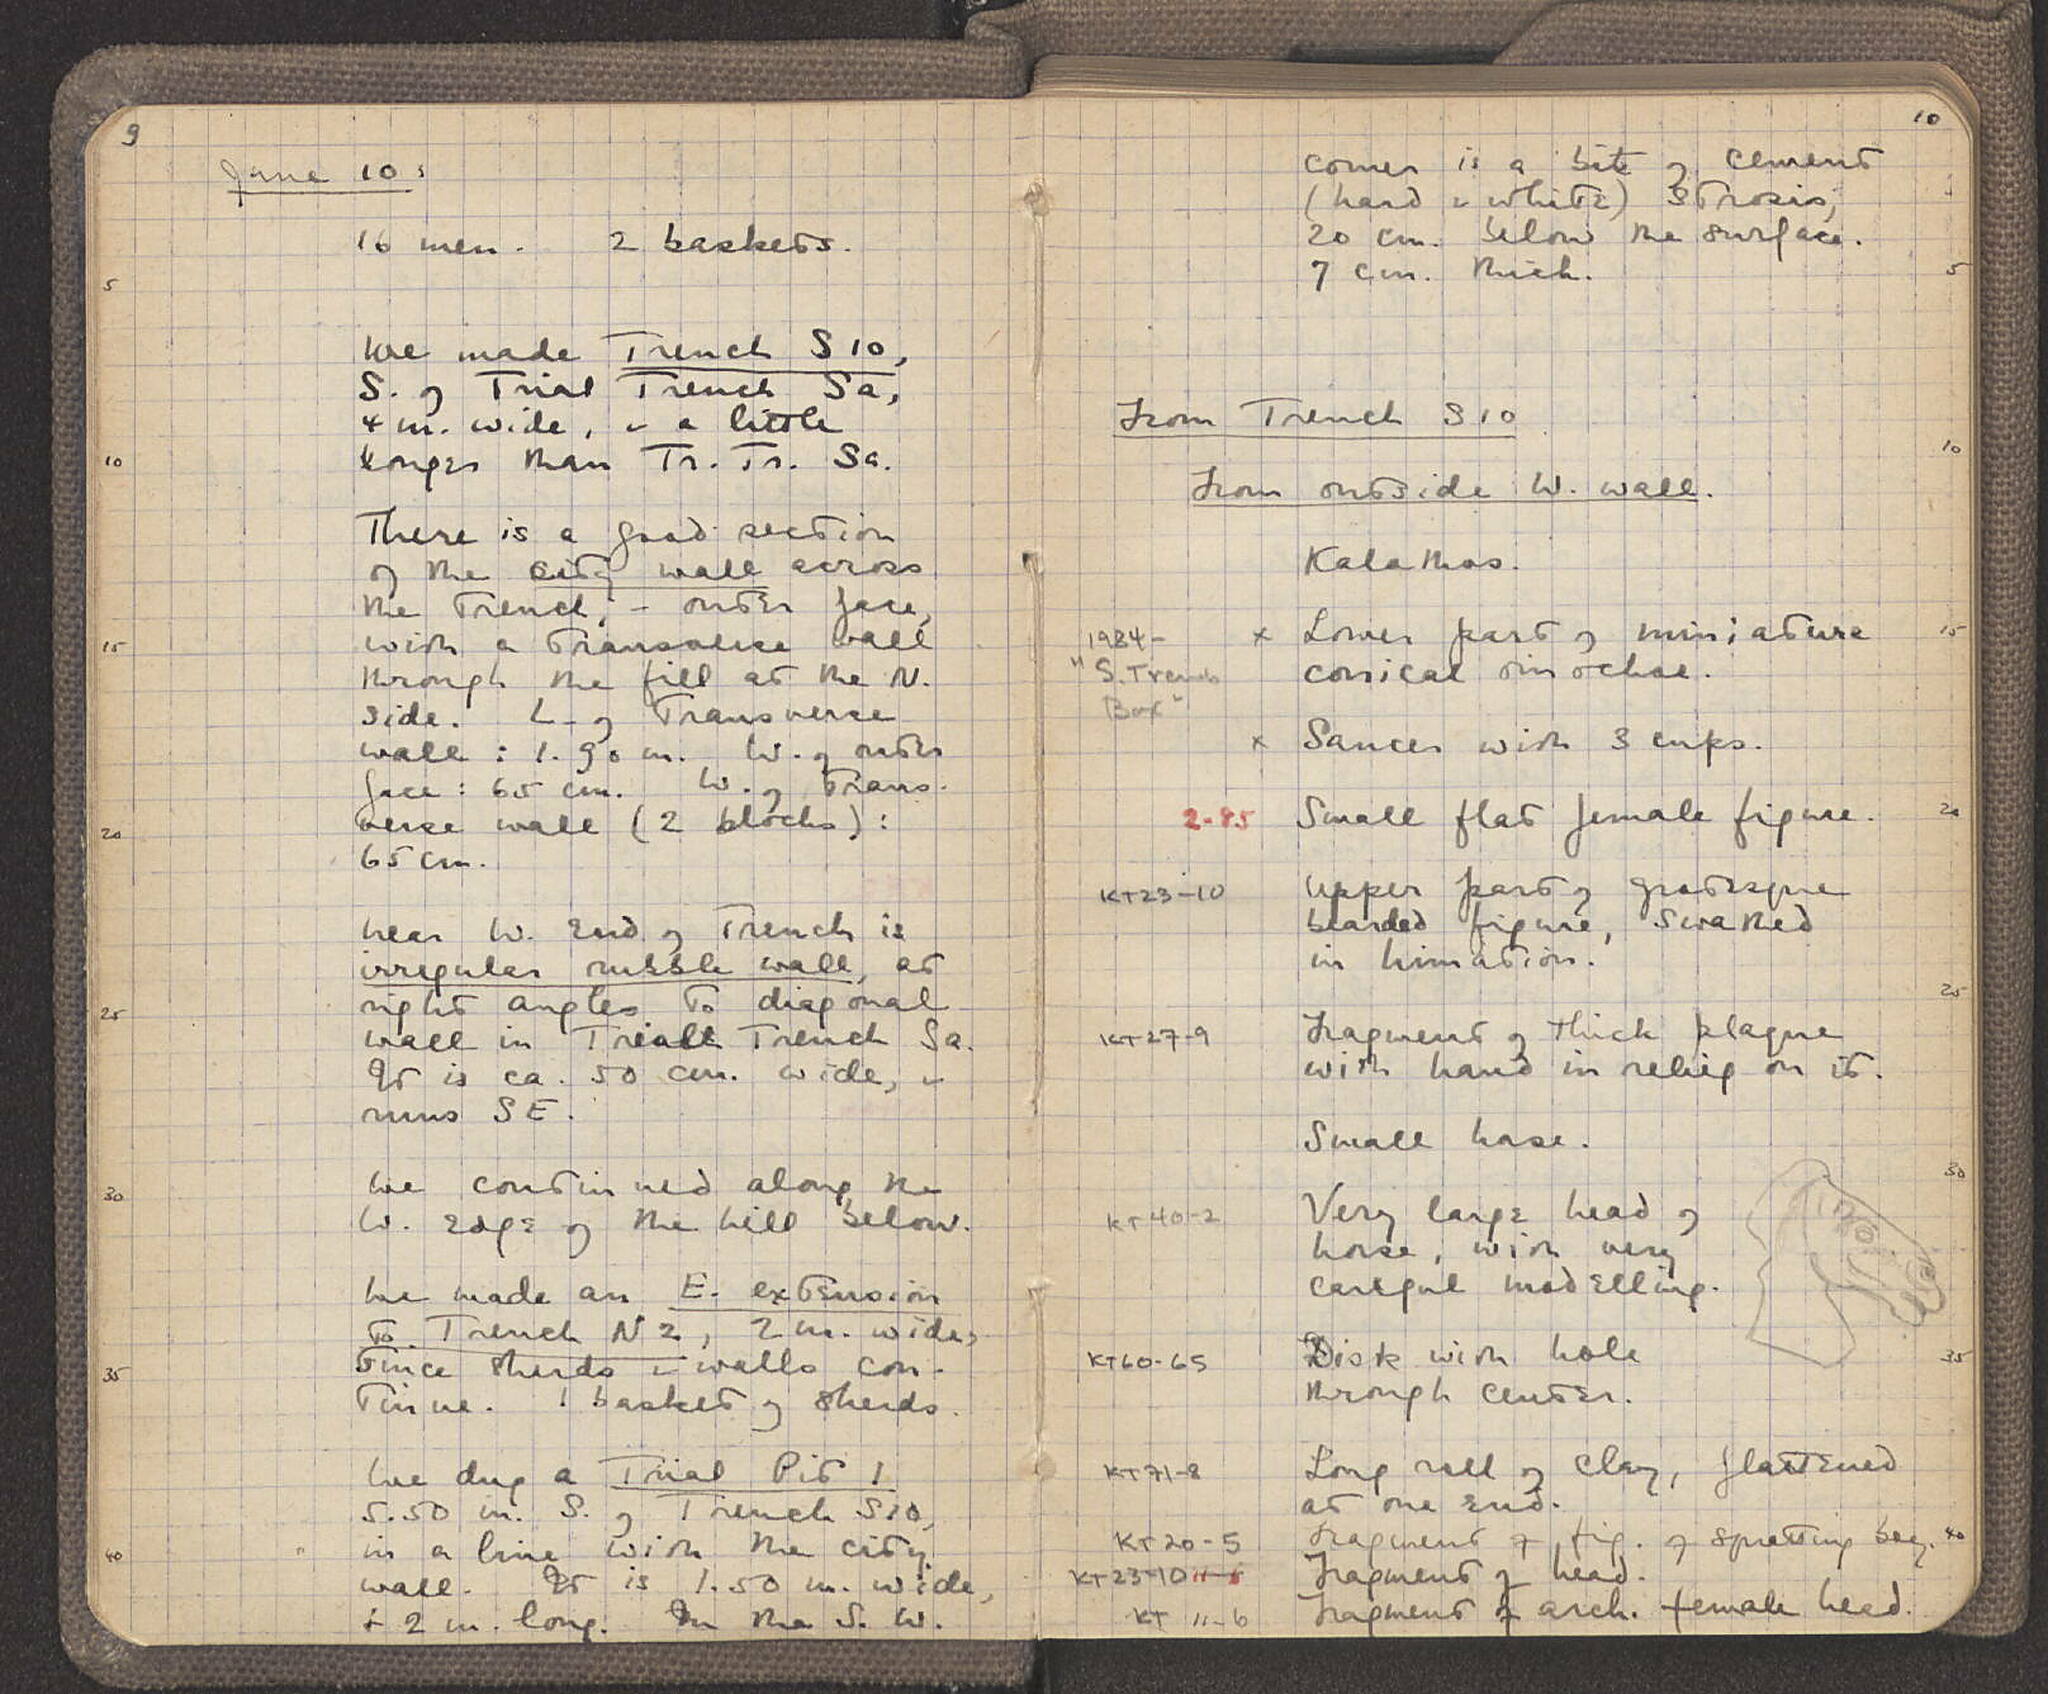 9
June 10:
16 men. 2 baskets.
5
We made Trench S 10,
S. of Trial Trench Sa,
4 m. wide, & a little
10 longer than Tr. Tr. Sa.
There is a good section
of the city wall across
the trench, – outer face,
15 with a transverse wall
through the fill at the N.
side. L. of transverse
wall: 1.90 m. W. of outer
face: 65 cm. W. of trans-
20 verse wall (2 blocks):
65 cm.
Near W. end of trench is
irregular rubble wall, at
25 right angles to diagonal
wall in Trial Trench Sa.
It is ca. 50 cm. wide, &
runs SE.
30 We continued along the
W. edge of the hill below.
We made an E. extension
to Trench N 2, 2 m. wide,
35 since sherds & walls con-
tinue. 1 basket of sherds.
We dug a Trial Pit 1
5.50 m. S. of Trench S10,
40 in a line with the city
wall. It is 1.50 m. wide,
+ 2 m. long. In the S. W.
10
corner is a bit of cement
(hard & white) strosis,
20 cm. below the surface.
7 cm. thick. 5
From Trench S 10
10
From outside W. wall.
Kalathos.
1984- x Lower part of miniature 15
"S. Trench conical oinochoe.
Box"
x Saucer with 3 cups.
2-85 Small flat female figure. 20
KT23-10 Upper part of grotesque
bearded figure, swathed
in himation.
25
KT27-9 Fragment of thick plaque
with hand in relief on it.
Small base.
30
KT40-2 Very large head of
horse, with very
careful modelling.
KT60-65 Disk with hole 35
through center.
KT71-8 Long roll of clay, flattened
at one end.
KT20-5 Fragment of fig. of squatting boy. 40
KT23-10 11-6 Fragment of head.
KT 11-6 Fragment of arch. female head.